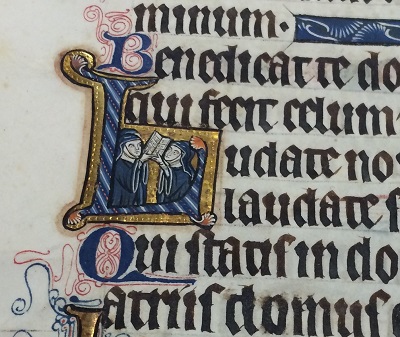 minum.
Benedicat te do
qui fecit celum
Laudate no
laudate s
Qui statis in do
atriis domus